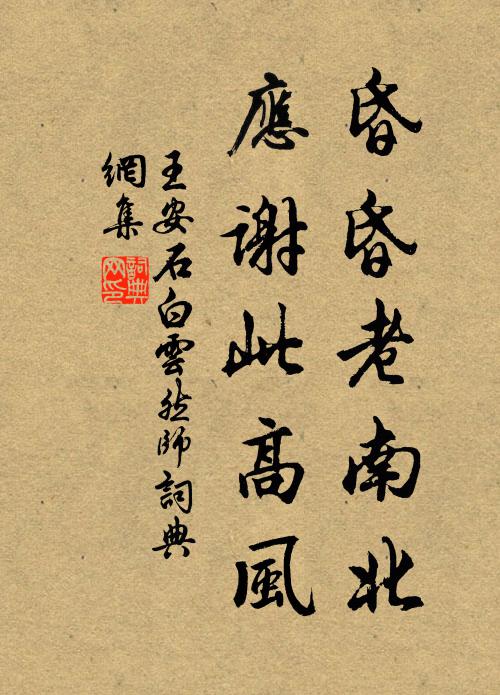 昏昏老南北
應謝此高風
王安石白雲然師詞典
網集
詞典
網印